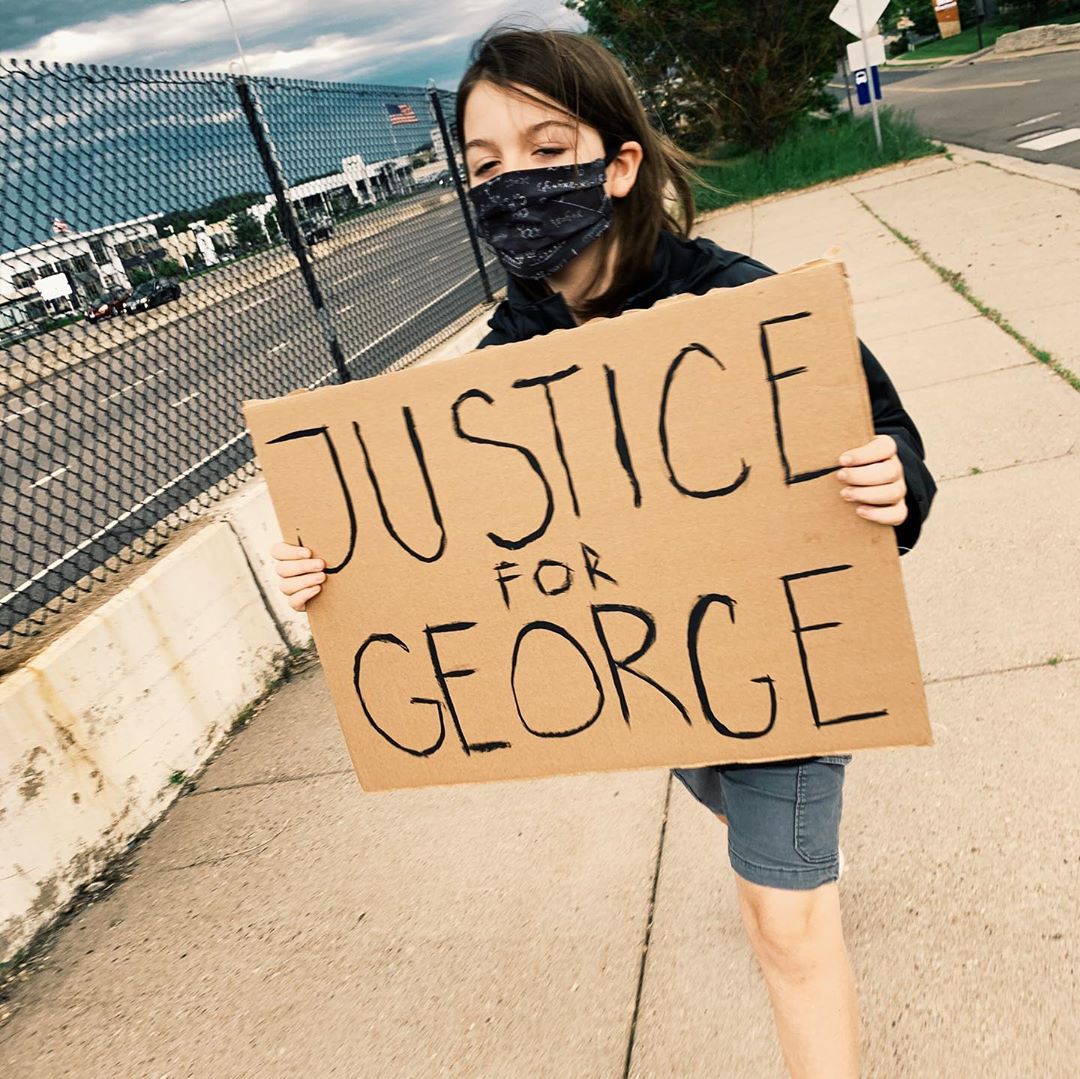 JUSTICE
FOR
GEORGE